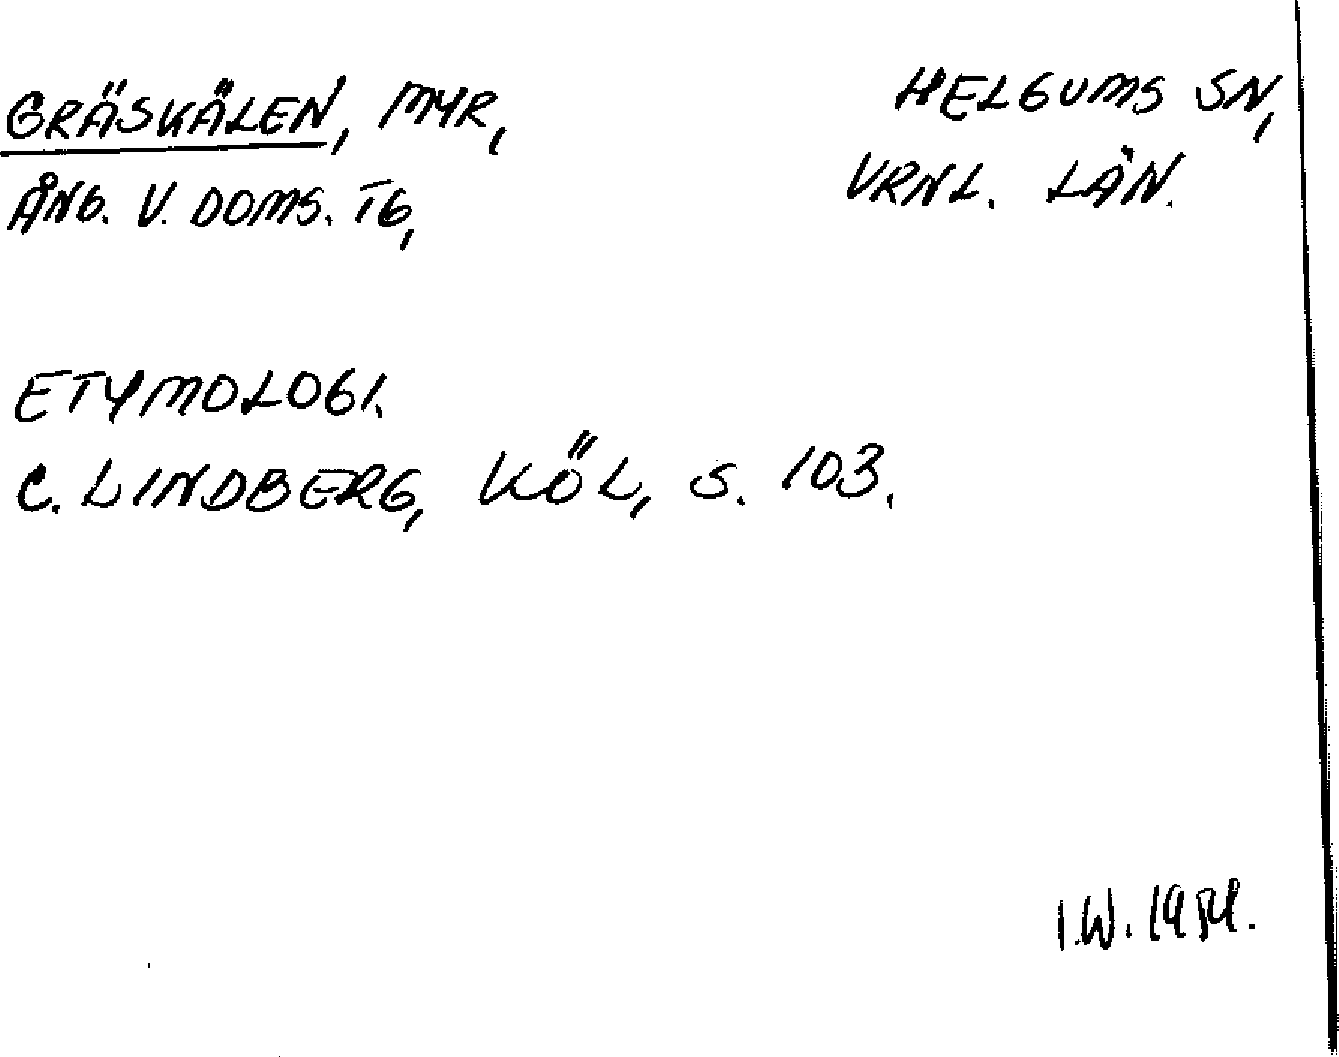 GRÄSKÄLEN, MYR,
HELGUMS SN,
ÅNG. V. DOMS. TG,
VRNL. LÄN.
ETYMOLOGI.
C. LINDBERG, KÖL, S. 103.
I.W. 1954.